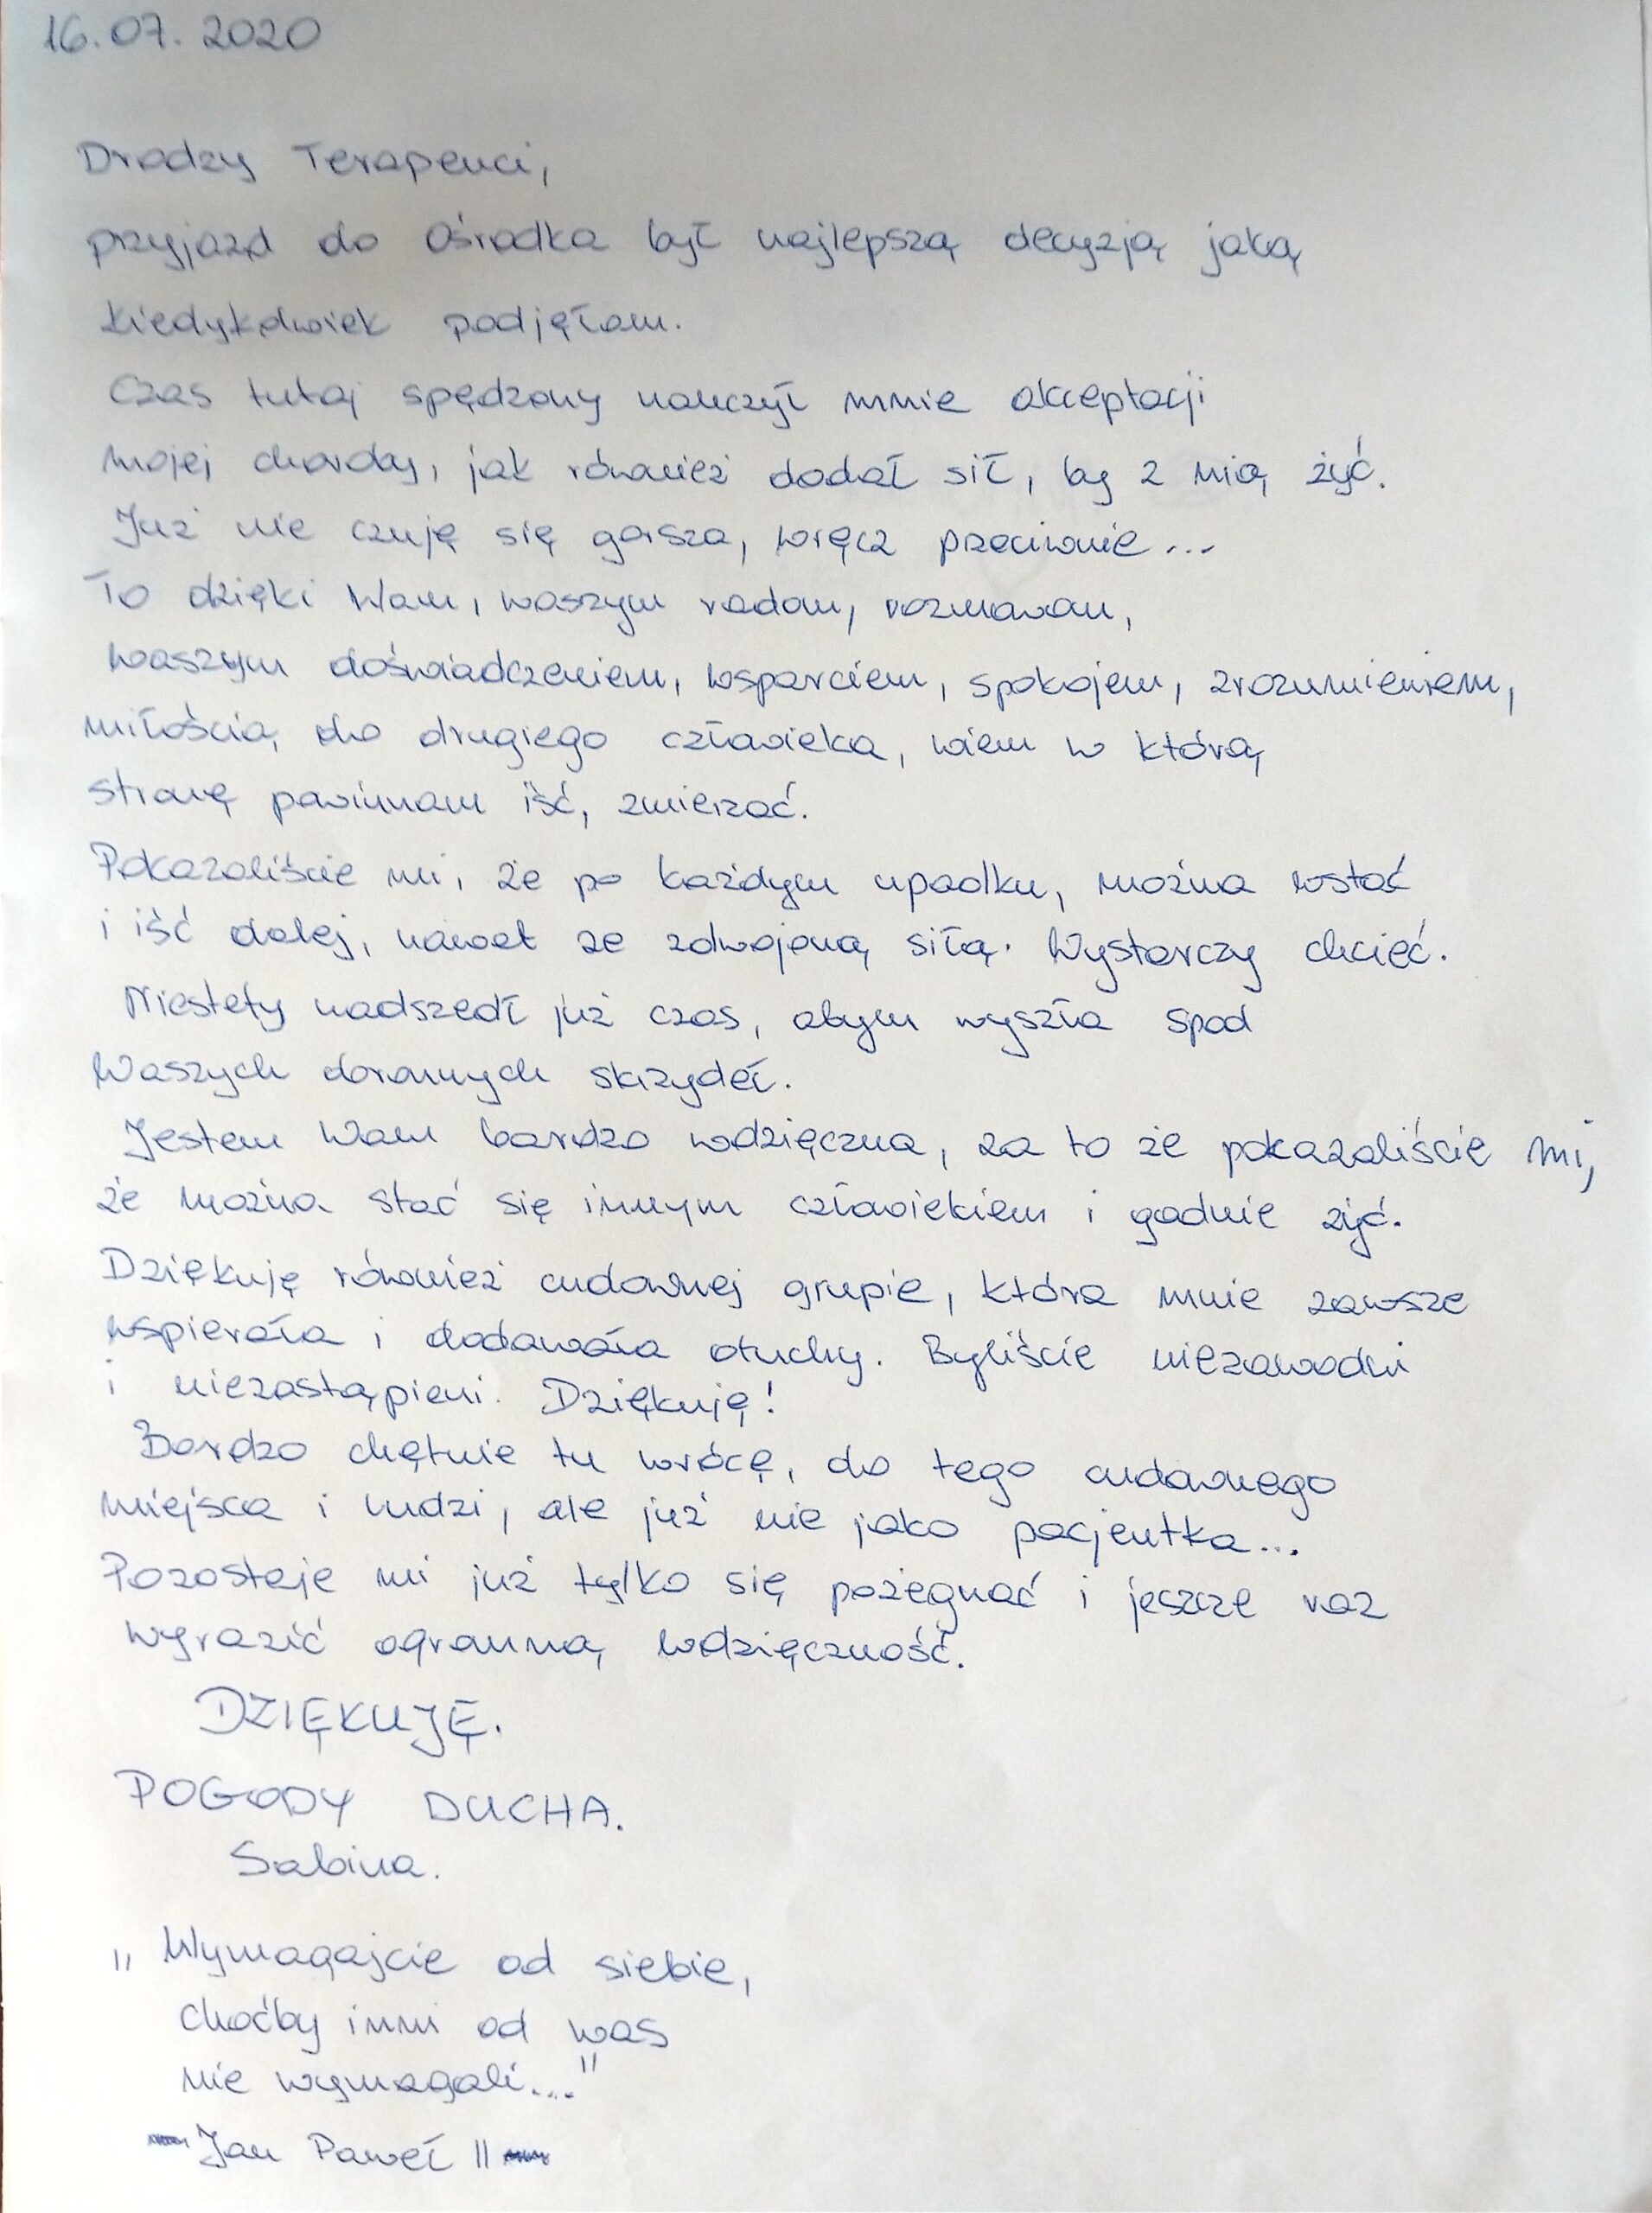 16.07.2020
Drodzy Terapeuci,
przyjazd do Ośrodka był najlepszą decyzją jaką
kiedykolwiek podjęłam.
Czas tutaj spędzony nauczył mnie akceptacji
mojej choroby, jak również dodał sił, by z nią żyć.
Już nie czuję się gorsza, wręcz przeciwnie...
To dzięki Wam, waszym radom, rozmowom,
waszym doświadczeniem, wsparciem, spokojem, zrozumieniem,
miłością do drugiego człowieka, wiem w którą
stronę powinnam iść, zmierzać.
Pokazaliście mi, że po każdym upadku, można wstać
i iść dalej, nawet ze zdwojoną siłą. Wystarczy chcieć.
Niestety nadszedł już czas, abym wyszła spod
Waszych doronnych skrzydeł.
Jestem Wam bardzo wdzięczna, za to że pokazaliście mi,
że można stać się innym człowiekiem i godnie żyć.
Dziękuję również cudownej grupie, która mnie zawsze
wspierała i dodawała otuchy. Byliście niezawodni
i niezastąpieni. Dziękuję!
Bardzo chętnie tu wrócę, do tego cudownego
miejsca i ludzi, ale już nie jako pacjentka...
Pozostaje mi już tylko się pożegnać i jeszcze raz
wyrazić ogromną wdzięczność.
DZIĘKUJĘ.
POGODY DUCHA.
Sabina.
„Wymagajcie od siebie,
choćby inni od was
nie wymagali...."
Jan Paweł II